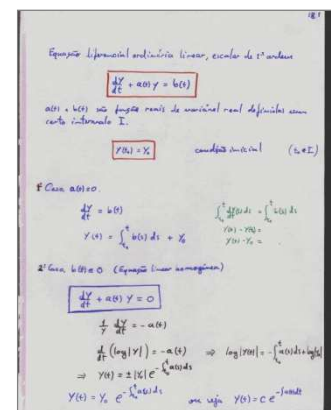 18.1
Equação diferencial ordinária linear, escalar de 1ª ordem
dY/dt + a(t) y = b(t)
a(t) e b(t) são funções reais de variável real definidas num
certo intervalo I.
Y(t₀) = Y₀ condição inicial (t₀ ∈ I)
1º Caso a(t)≡0.
dY/dt = b(t)
Y(t) = ∫_{t₀}^{t} b(s) ds + Y₀
∫_{t₀}^{t} dY/ds(s) ds = ∫_{t₀}^{t} b(s) ds
Y(t) - Y(t₀) =
Y(t) - Y₀ =
2º Caso, b(t)≡0 (Equação linear homogénea)
dY/dt + a(t) Y = 0
1/Y dY/dt = -a(t)
d/dt (log|Y|) = -a(t) ⇒ log|Y(t)| = -∫_{t₀}^{t} a(s)ds + log|Y₀|
⇒ Y(t) = ± |Y₀| e^{-∫_{t₀}^{t} a(s)ds}
Y(t) = Y₀ e^{-∫_{t₀}^{t} a(s)ds} ou seja Y(t) = C e^{-∫a(t)dt}